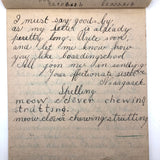 I must say good-by,
as my letter is already
pretty long. Write soon,
and let me know how
you like boarding school
Your affectionate
Margaret.
Spelling
meow clover chewing
strutting.
meow clover chewing strutting